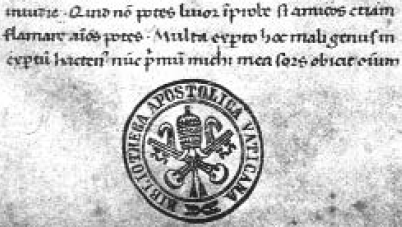 inuidie · Quid nō potes liuor īprobe si amicos etiam
flamare aīos potes · Multa expto hoc mali genus in
exptū hacten' nūc p'mū michi mea sors obicit cum
BIBLIOTHECA APOSTOLICA VATICANA